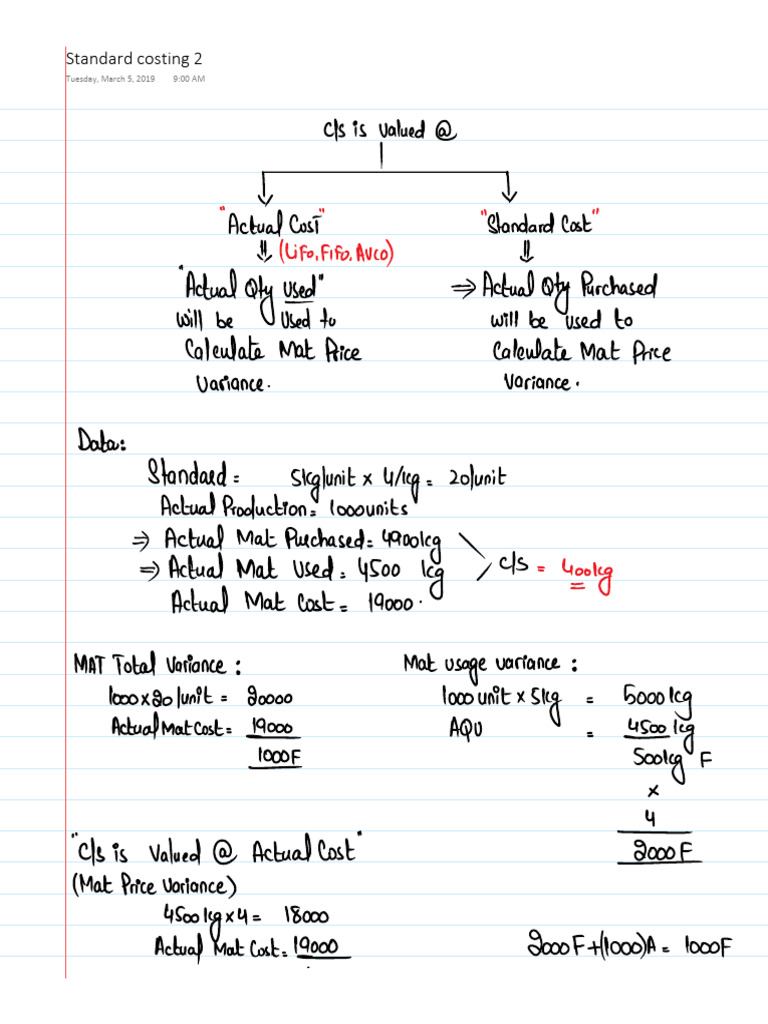 Standard costing 2
Tuesday, March 5, 2019 9:00 AM
c/s is valued @
"Actual Cost"
"Standard Cost"
⇓ (LiFo, FiFo, AVCO)
⇓
"Actual Qty Used"
will be Used to
Calculate Mat Price
Variance.
⇒ Actual Qty Purchased
will be used to
Calculate Mat Price
Variance.
Data:
Standard = 5kg/unit x 4/kg = 20/unit
Actual Production = 1000units
⇒ Actual Mat Purchased = 4900kg
⇒ Actual Mat Used = 4500 kg
c/s = 400kg
Actual Mat Cost = 19000.
MAT Total Variance:
1000x20/unit = 20000
Actual Mat Cost = 19000
1000F
Mat usage variance:
1000unit x 5kg = 5000kg
AQU = 4500kg
500kg F
x
4
2000F
"C/s is Valued @ Actual Cost"
(Mat Price Variance)
4500kg x 4 = 18000
Actual Mat Cost = 19000
2000F+(1000)A = 1000F